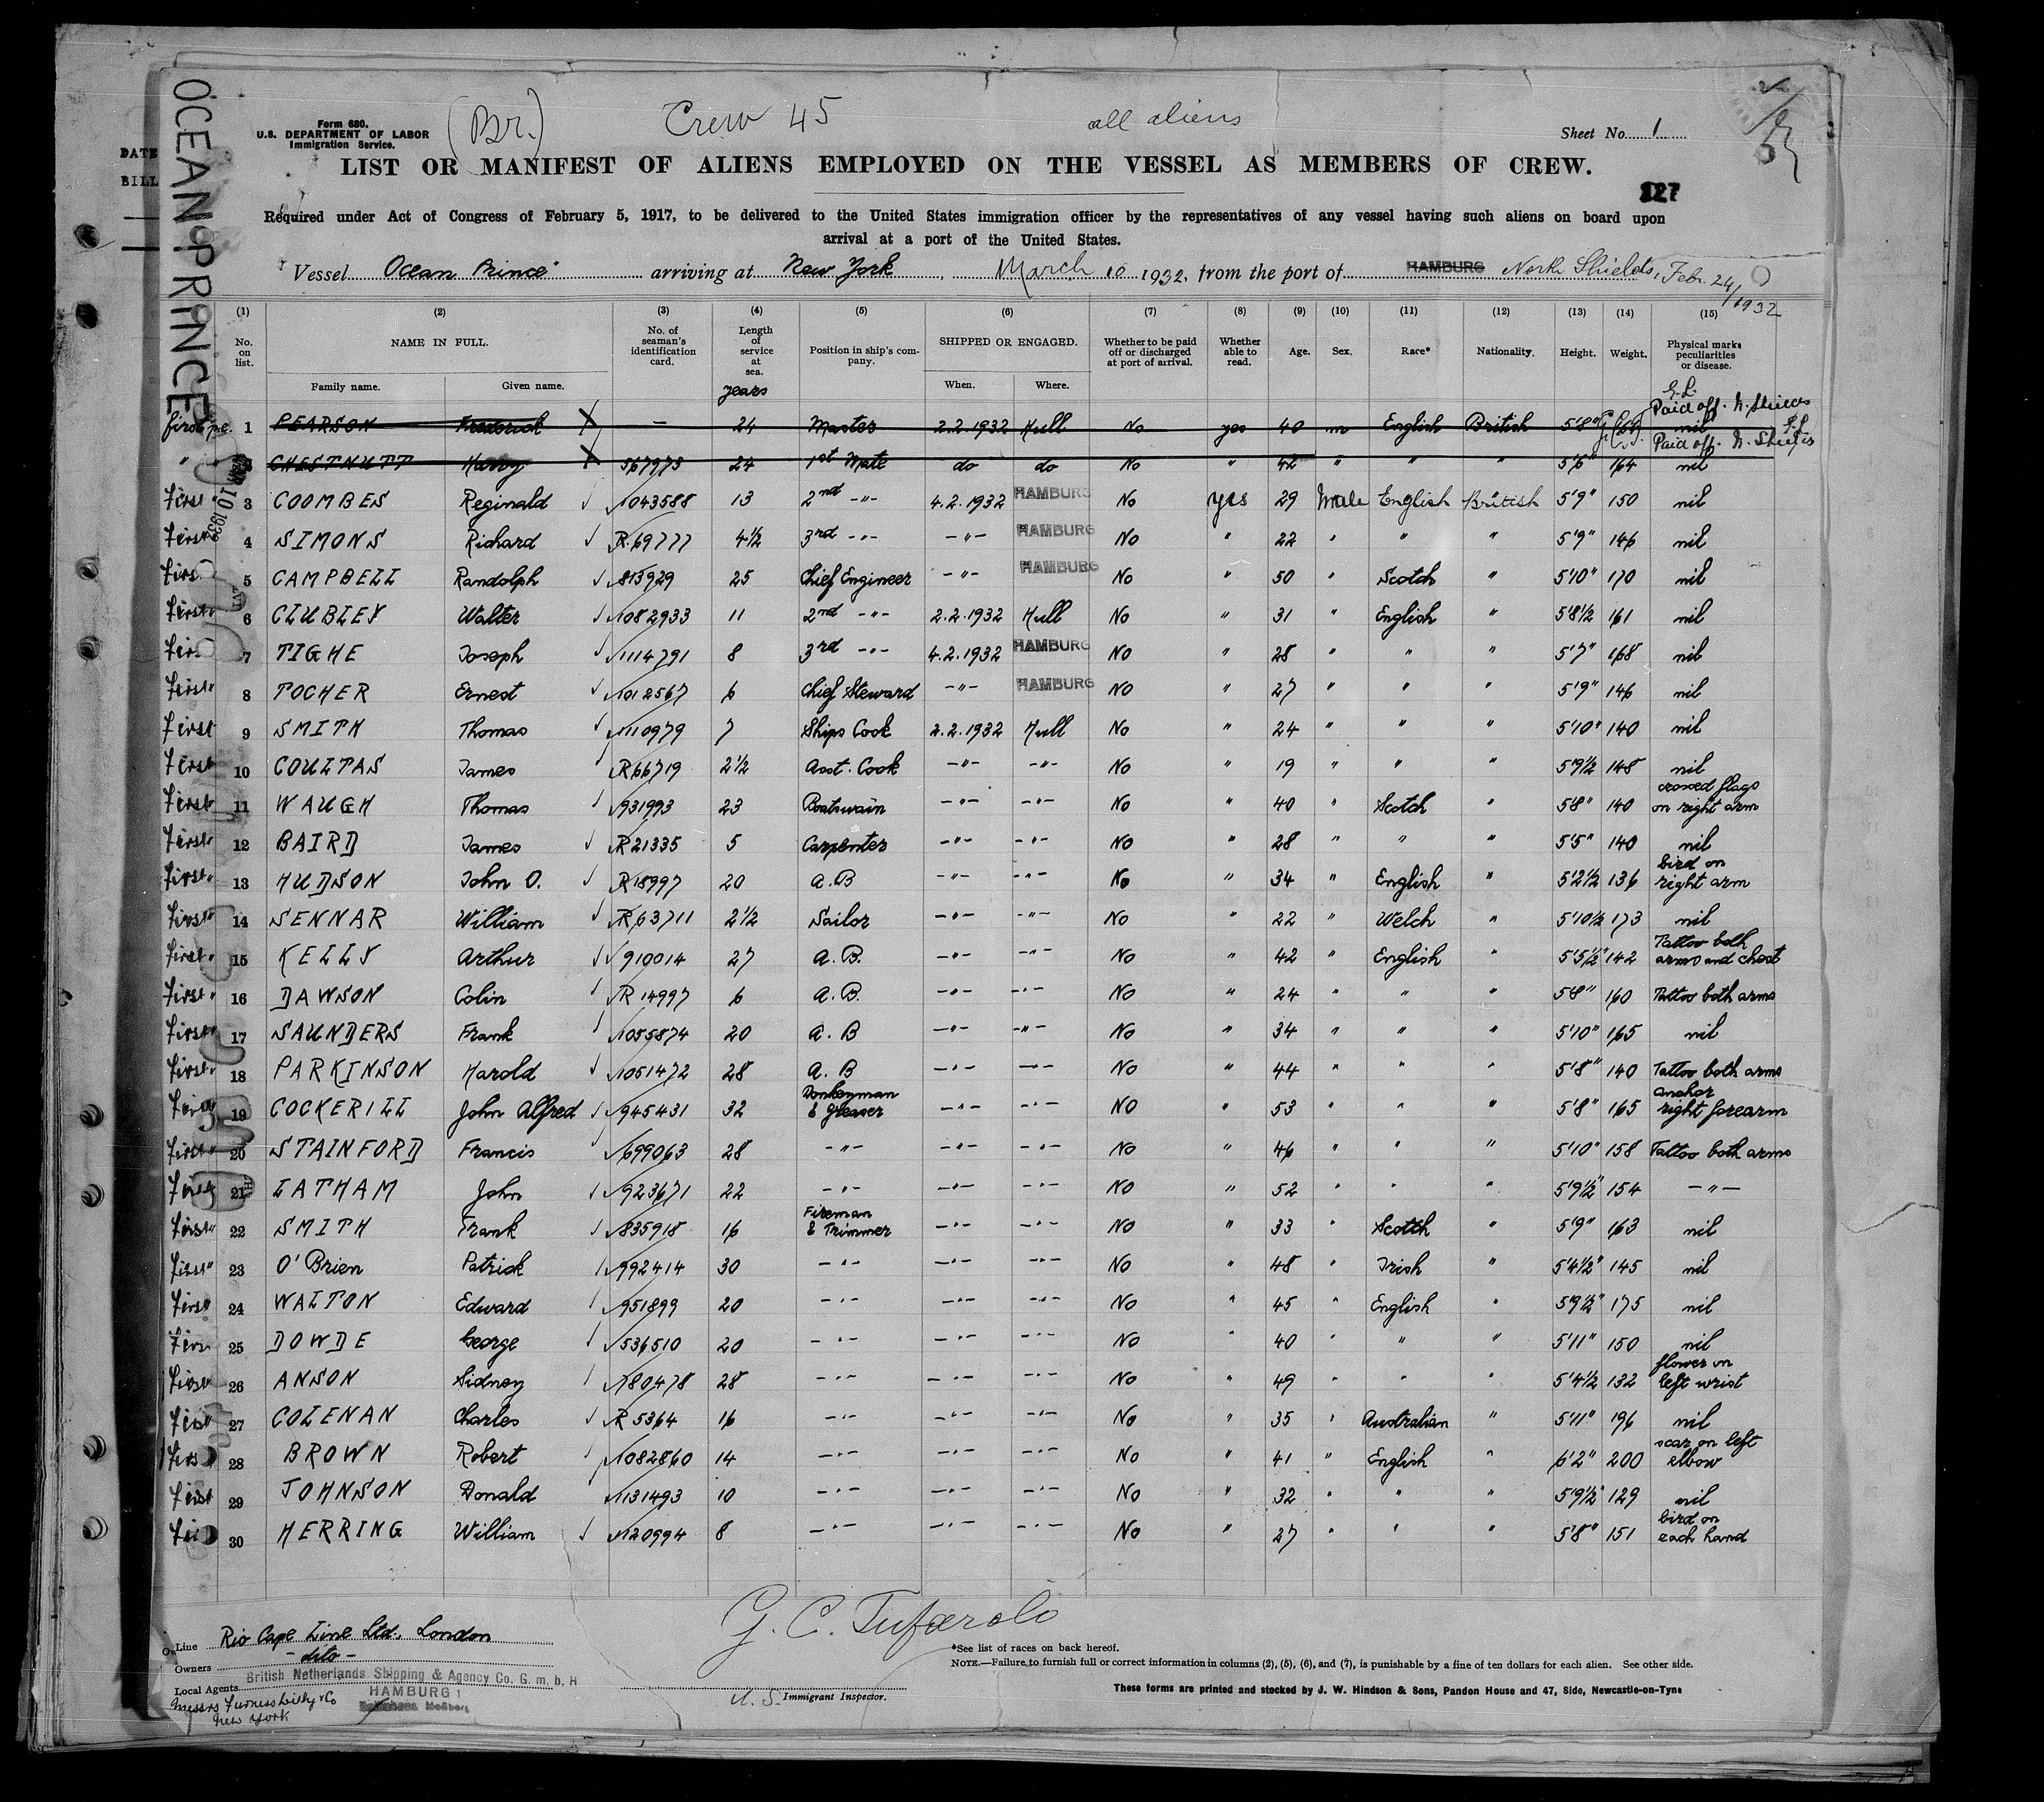 OCEAN PRINCE
DATE
BILL
Form 680.
U. S. DEPARTMENT OF LABOR
Immigration Service.
(Br.)
Crew 45
all aliens
Sheet No. 1
LIST OR MANIFEST OF ALIENS EMPLOYED ON THE VESSEL AS MEMBERS OF CREW.
127
Required under Act of Congress of February 5, 1917, to be delivered to the United States immigration officer by the representatives of any vessel having such aliens on board upon
arrival at a port of the United States.
Vessel "Ocean Prince" arriving at New York, March 10 1932, from the port of HAMBURG North Shields, Feb. 24/1932
(1) (2) (3) (4) (5) (6) (7) (8) (9) (10) (11) (12) (13) (14) (15)
No. on list. NAME IN FULL. Family name. Given name. No. of seaman's identification card. Length of service at sea. years Position in ship's company. SHIPPED OR ENGAGED. When. Where. Whether to be paid off or discharged at port of arrival. Whether able to read. Age. Sex. Race* Nationality. Height. Weight. Physical marks peculiarities or disease.
1 PEARSON Frederick X — 24 Master 2.2.1932 Hull No yes 40 m English British 5'8" nil Paid off. N. Shields
" CHESTNUTT Harry X 567973 24 1st Mate do do No " 42 " " " 5'6" 164 nil Paid off. N. Shields
First 3 COOMBES Reginald 1043588 13 2nd -"- 4.2.1932 HAMBURG No yes 29 Male English British 5'9" 150 nil
First 4 SIMONS Richard R.69777 4½ 3rd -"- -"- HAMBURG No " 22 " " " 5'9" 146 nil
First 5 CAMPBELL Randolph 813929 25 Chief Engineer -"- HAMBURG No " 50 " Scotch " 5'10" 170 nil
First 6 CLUBLEY Walter 1082933 11 2nd -"- 2.2.1932 Hull No " 31 " English " 5'8½ 161 nil
First 7 TIGHE Joseph 1114791 8 3rd -"- 4.2.1932 HAMBURG No " 28 " " " 5'7" 168 nil
First 8 TOCHER Ernest 1012567 6 Chief Steward -"- HAMBURG No " 27 " " " 5'9" 146 nil
First 9 SMITH Thomas 1110979 7 Ships Cook 2.2.1932 Hull No " 24 " " " 5'10" 140 nil
First 10 COULTAS James R66719 2½ Asst. Cook -"- -"- No " 19 " " " 5'9½ 148 nil
First 11 WAUGH Thomas 931993 23 Boatswain -"- -"- No " 40 " Scotch " 5'8" 140 crossed flags on right arm
First 12 BAIRD James R21335 5 Carpenter -"- -"- No " 28 " " " 5'5" 140 nil
First 13 HUDSON John O. R18997 20 A.B -"- -"- No " 34 " English " 5'2½ 136 bird on right arm
First 14 SENNAR William R63711 2½ Sailor -"- -"- No " 22 " Welch " 5'10½ 173 nil
First 15 KELLY Arthur 910014 27 A.B. -"- -"- No " 42 " English " 5'5½" 142 Tattoo both arms and chest
First 16 DAWSON Colin R 14997 6 A.B. -"- -"- No " 24 " " " 5'8" 160 Tattoo both arms
First 17 SAUNDERS Frank 1055874 20 A.B -"- -"- No " 34 " " " 5'10" 165 nil
First 18 PARKINSON Harold 1051472 28 A.B -"- -"- No " 44 " " " 5'8" 140 Tattoo both arms
First 19 COCKERILL John Alfred 945431 32 Donkeyman & Greaser -"- -"- No " 53 " " " 5'8" 165 anchor right forearm
First 20 STAINFORD Francis 699063 28 -"- -"- -"- No " 46 " " " 5'10" 158 Tattoo both arms
First 21 LATHAM John 923671 22 -"- -"- -"- No " 52 " " " 5'9½" 154 -"-
First 22 SMITH Frank 835918 16 Fireman & Trimmer -"- -"- No " 33 " Scotch " 5'9" 163 nil
First 23 O'Brien Patrick 992414 30 -"- -"- -"- No " 48 " Irish " 5'4½" 145 nil
First 24 WALTON Edward 951899 20 -"- -"- -"- No " 45 " English " 5'9½" 175 nil
First 25 DOWDE George 536510 20 -"- -"- -"- No " 40 " " " 5'11" 150 nil
First 26 ANSON Sidney 180478 28 -"- -"- -"- No " 49 " " " 5'4½ 132 flower on left wrist
First 27 COLENAN Charles R 5364 16 -"- -"- -"- No " 35 " Australian " 5'11" 196 nil
First 28 BROWN Robert 1082860 14 -"- -"- -"- No " 41 " English " 6'2" 200 scar on left elbow
First 29 JOHNSON Donald 1131493 10 -"- -"- -"- No " 32 " " " 5'9½" 129 nil
First 30 HERRING William 1120994 8 -"- -"- -"- No " 27 " " " 5'8" 151 bird on each hand
G. C. Tufarolo
U. S. Immigrant Inspector.
Line Rio Cape Line Ltd., London
Owners - dito -
Local Agents British Netherlands Shipping & Agency Co. G. m. b. H
HAMBURG 1
Messrs Furness Withy & Co
New York
*See list of races on back hereof.
NOTE.—Failure to furnish full or correct information in columns (2), (5), (6), and (7), is punishable by a fine of ten dollars for each alien. See other side.
These forms are printed and stocked by J. W. Hindson & Sons, Pandon House and 47, Side, Newcastle-on-Tyne